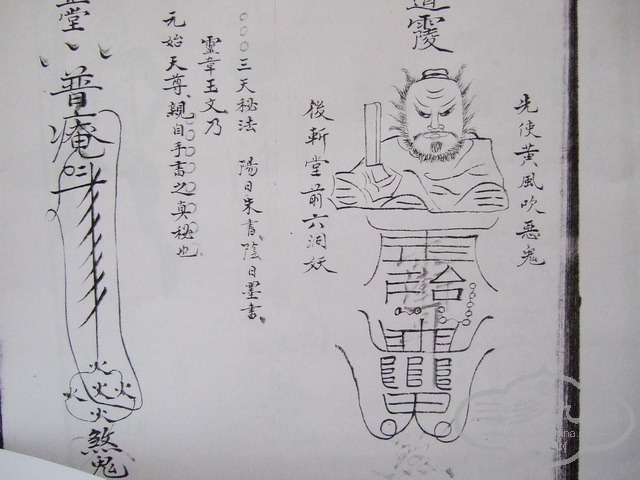 先使黃風吹惡鬼
道
後斬堂前六洞妖
○○○三天秘法 陽日朱書陰日墨書
靈章王文乃
元始天尊親自手書之真秘也
堂
普庵
火
火火火
火
煞鬼